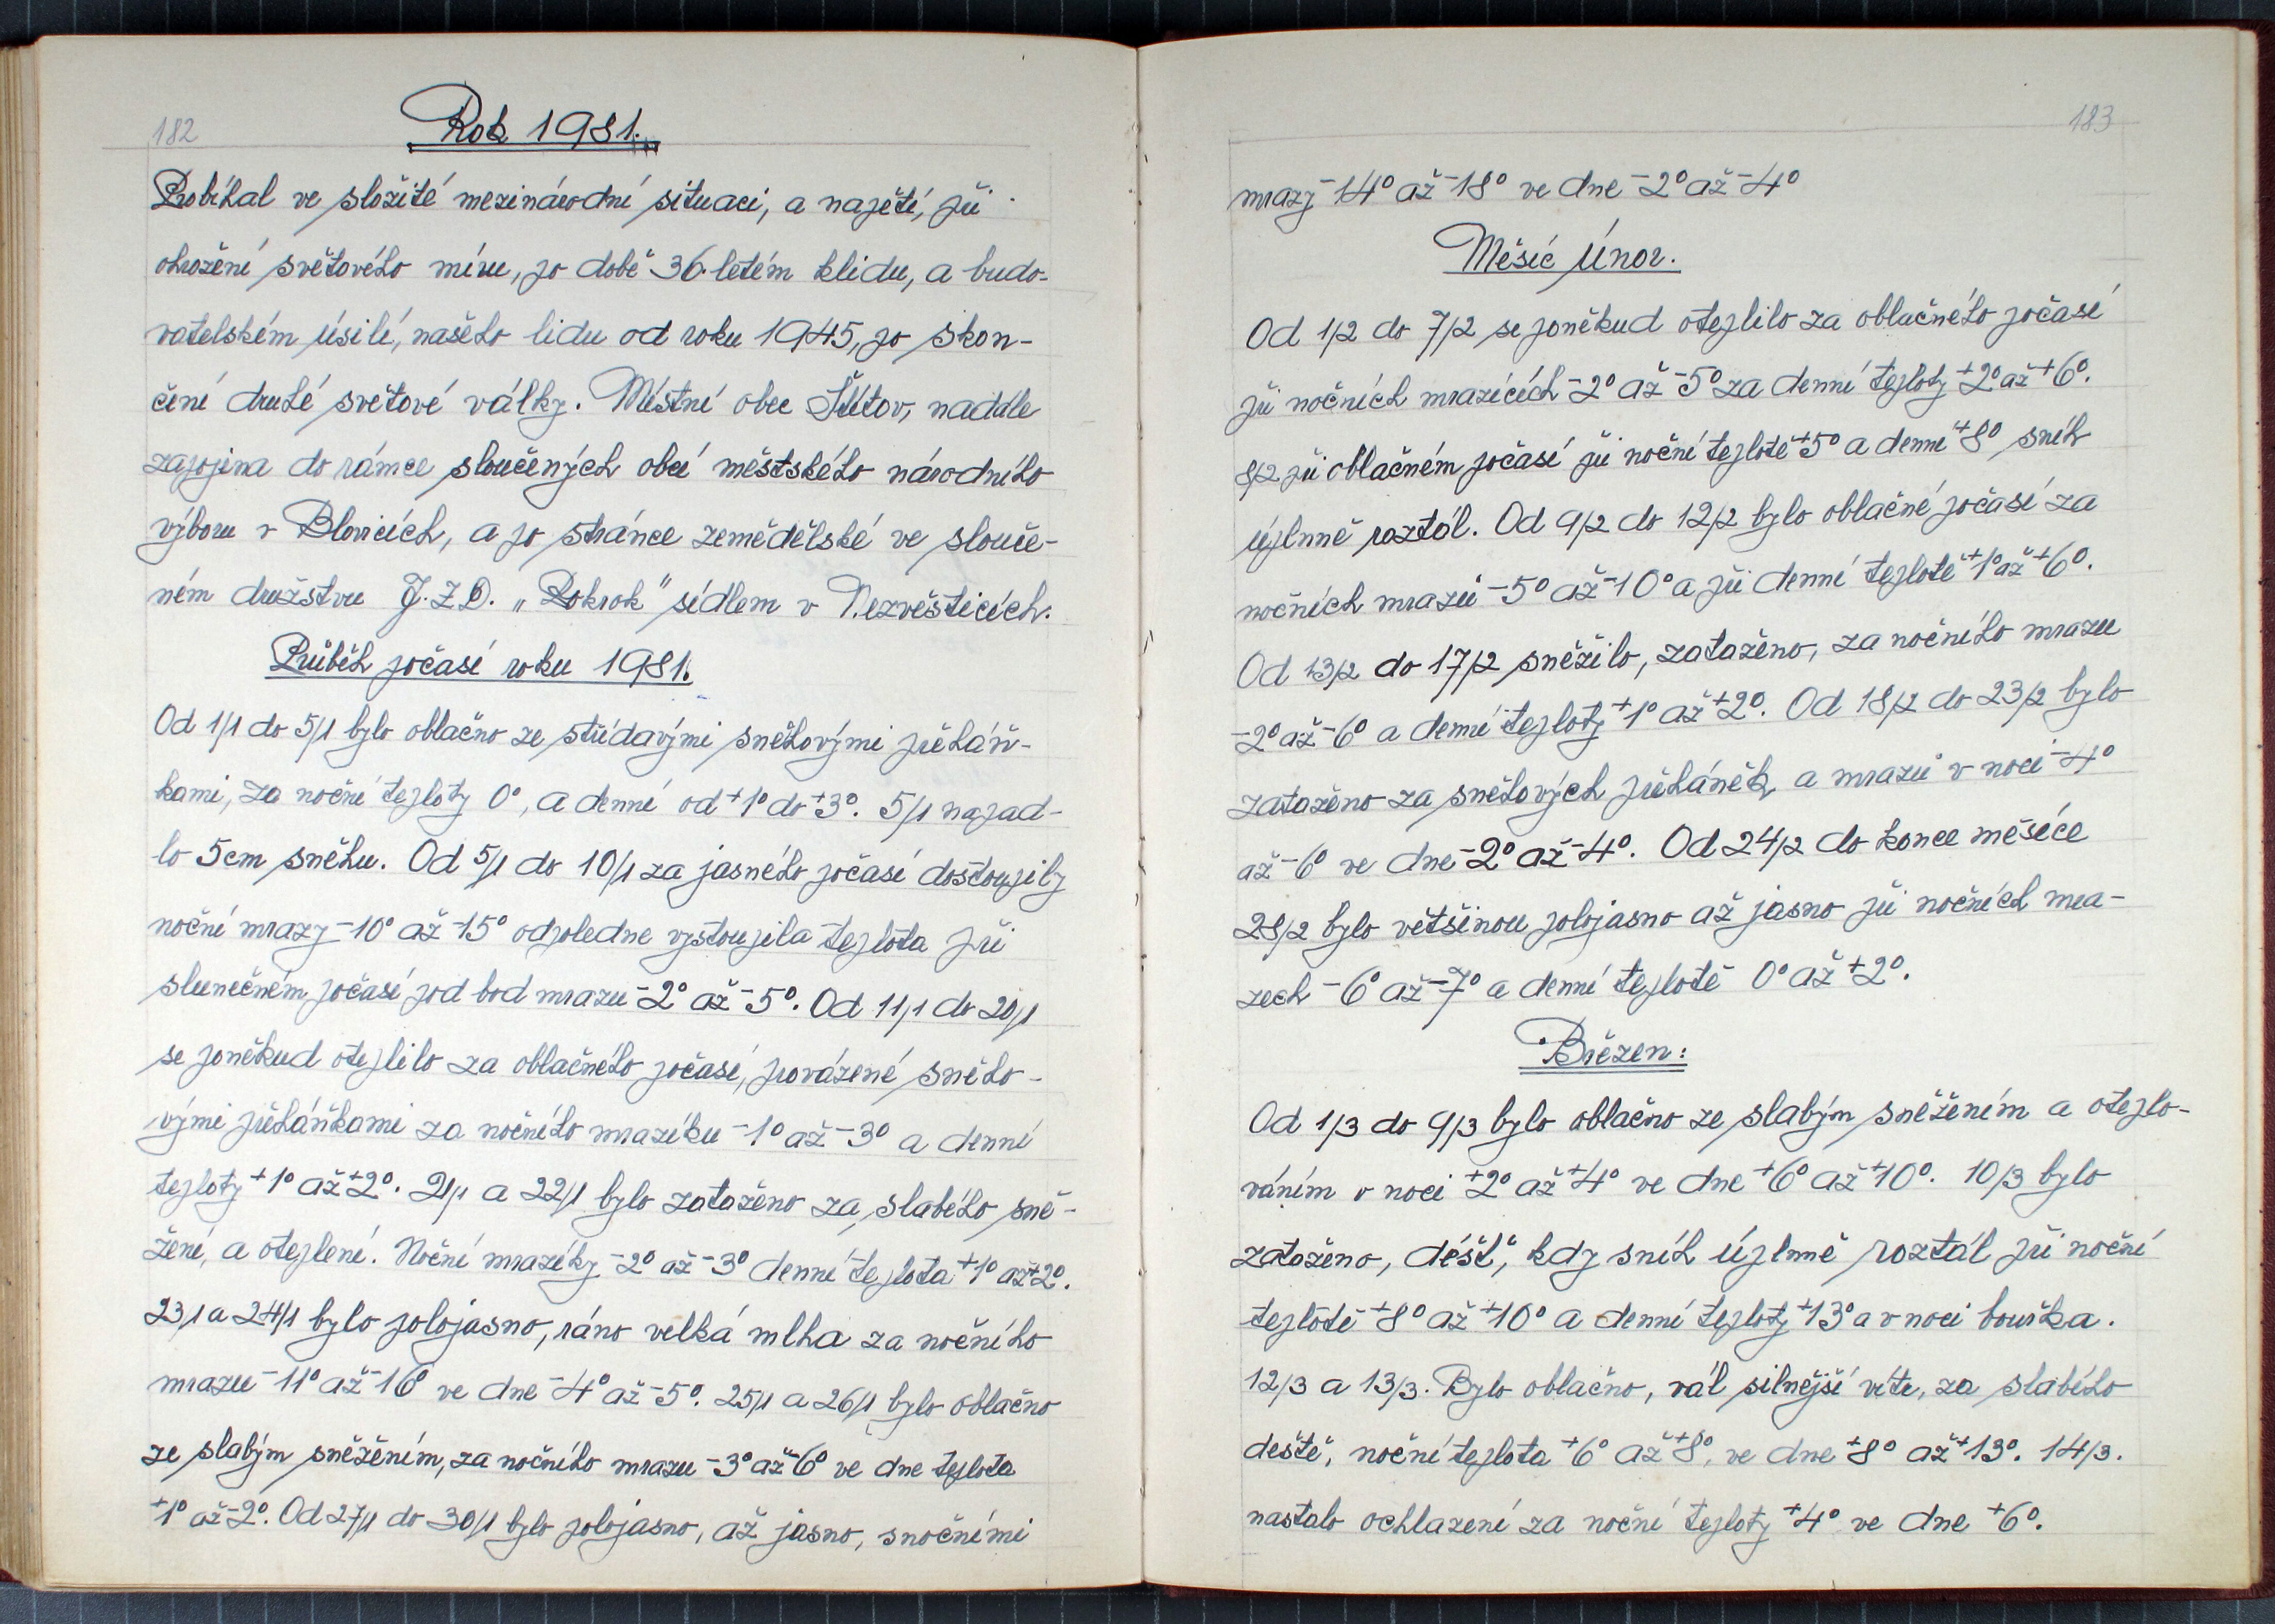 182
Rok 1981.
Probíhal ve složité mezinárodní situaci, a napětí, při
ohrožení světového míru, po době 36 letém klidu, a budo-
vatelském úsilí, našeho lidu od roku 1945, po skon-
čení druhé světové války. Místní obec Štítov, nadále
zapojena do rámce sloučených obcí městského národního
výboru v Blovicích, a po stránce zemědělské ve slouče-
ném družstvu J.Z.D. „Pokrok" sídlem v Nezvěsticích.
Průběh počasí roku 1981.
Od 1/1 do 5/1 bylo oblačno ze střídavými sněhovými přeháň-
kami, za noční teploty 0°, a denní od +1° do +3°. 5/1 napad-
lo 5cm sněhu. Od 5/1 do 10/1 za jasného počasí dostoupily
noční mrazy -10° až -15° odpoledne vystoupila teplota při
slunečném počasí pod bod mrazu -2° až -5°. Od 11/1 do 20/1
se poněkud oteplilo za oblačného počasí, provázené sněho-
vými přeháňkami za nočního mrazíku -1° až -3° a denní
teploty +1° až +2°. 21/1 a 22/1 bylo zataženo za slabého sně-
žení, a oteplení. Noční mrazíky -2° až -3° denní teplota +1° až +2°.
23/1 a 24/1 bylo polojasno, ráno velká mlha za nočního
mrazu -11° až -16° ve dne -4° až -5°. 25/1 a 26/1 bylo oblačno
ze slabým sněžením, za nočního mrazu -3° až -6° ve dne teplota
+1° až -2°. Od 27/1 do 30/1 bylo polojasno, až jasno, snočními
183
mrazy -14° až -18° ve dne -2° až -4°
Měsíc Únor.
Od 1/2 do 7/2 se poněkud oteplilo za oblačného počasí
při nočních mrazících -2° až -5° za denní teploty +2° až +6°.
8/2 při oblačném počasí při noční teplotě +5° a denní +8° sníh
úplnně roztál. Od 9/2 do 12/2 bylo oblačné počasí za
nočních mrazů -5° až -10° a při denní teplotě +1° až +6°.
Od 13/2 do 17/2 sněžilo, zataženo, za nočního mrazu
-2° až -6° a denní teploty +1° až +2°. Od 18/2 do 23/2 bylo
zataženo za sněhových přeháněk, a mrazů v noci -4°
až -6° ve dne -2° až -4°. Od 24/2 do konce měsíce
28/2 bylo většinou polojasno až jasno při nočních mra-
zech -6° až -7° a denní teplotě 0° až +2°.
Březen:
Od 1/3 do 9/3 bylo oblačno ze slabým sněžením a oteplo-
váním v noci +2° až +4° ve dne +6° až +10°. 10/3 bylo
zataženo, déšť, kdy sníh úplnně roztál při noční
teplotě +8° až +10° a denní teploty +13° a v noci bouřka.
12/3 a 13/3. Bylo oblačno, vál silnější vítr, za slabého
deště, noční teplota +6° až +8°, ve dne +8° až +13°. 14/3.
nastalo ochlazení za noční teploty +4° ve dne +6°.